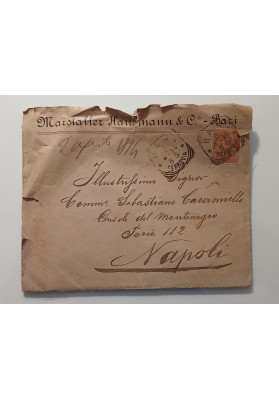 Marstaller Hausmann & C° - Bari
2 aprile 1894
Illustrissimo Signor
Comm. Sebastiano
Console del Montenegro
Foria 112
Napoli